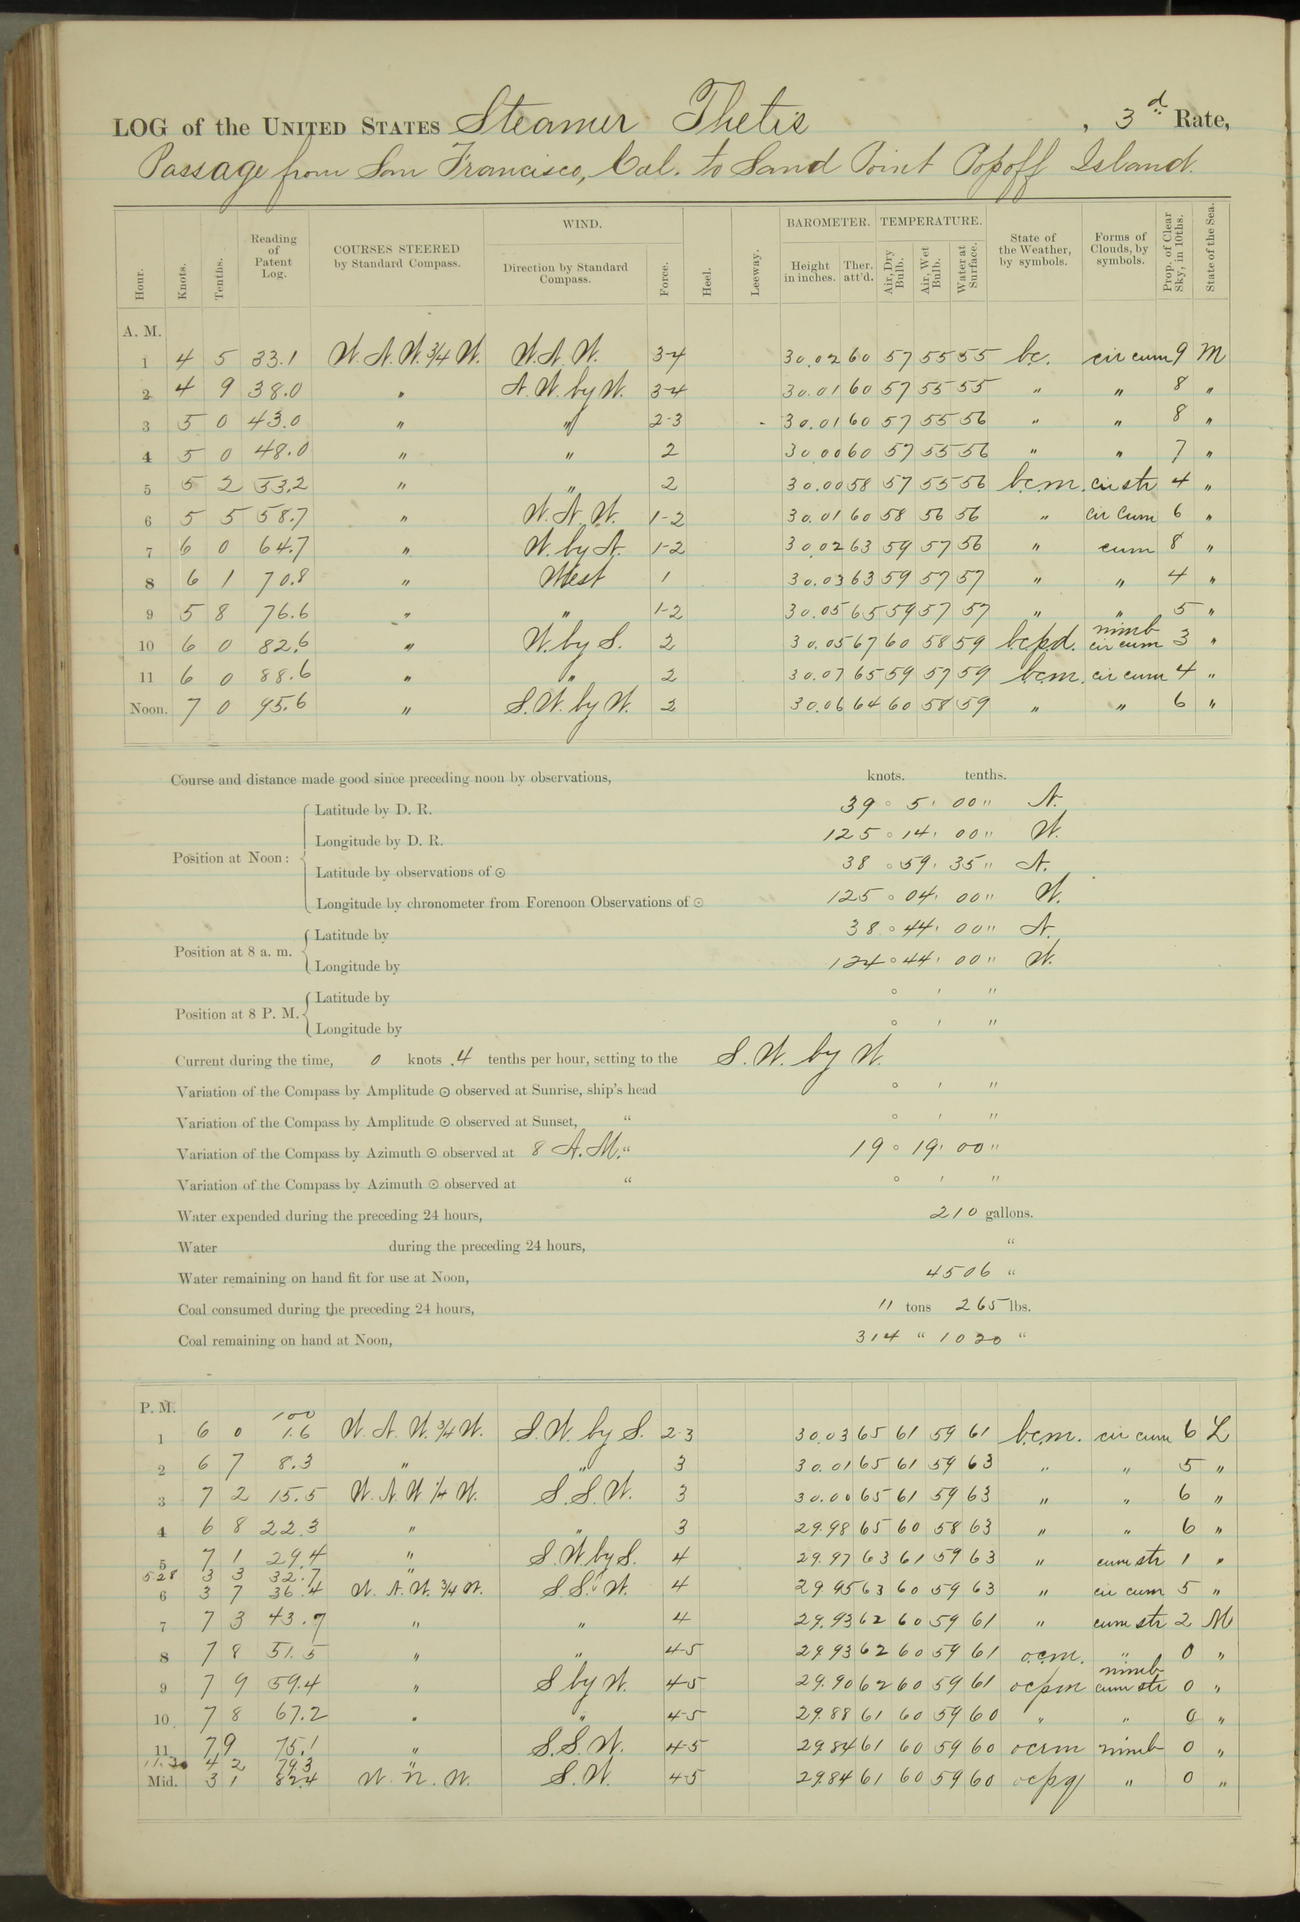 LOG of the UNITED STATES Steamer Thetis, 3d Rate,
Passage from San Francisco, Cal. to Sand Point Popoff Island.
Hour. Knots. Tenths. Reading of Patent Log. COURSES STEERED by Standard Compass. WIND. Direction by Standard Compass. Force. Heel. Leeway. BAROMETER. Height in inches. Ther. att'd. TEMPERATURE. Air, Dry Bulb. Air, Wet Bulb. Water at Surface. State of the Weather, by symbols. Forms of Clouds, by symbols. Prop. of Clear Sky, in 10ths. State of the Sea.
A. M.
1 4 5 33.1 W. N. W. 3/4 W. W. N. W. 3-4 30.02 60 57 55 55 bc. cir cum 9 M
2 4 9 38.0 " N. W. by W. 3-4 30.01 60 57 55 55 " " 8 "
3 5 0 43.0 " " 2-3 30.01 60 57 55 56 " " 8 "
4 5 0 48.0 " " 2 30.00 60 57 55 56 " " 7 "
5 5 2 53.2 " " 2 30.00 58 57 55 56 b.c.m. cir str 4 "
6 5 5 58.7 " W. N. W. 1-2 30.01 60 58 56 56 " cir cum 6 "
7 6 0 64.7 " W. by N. 1-2 30.02 63 59 57 56 " cum 8 "
8 6 1 70.8 " West 1 30.03 63 59 57 57 " " 4 "
9 5 8 76.6 " " 1-2 30.05 65 59 57 57 " " 5 "
10 6 0 82.6 " W. by S. 2 30.05 67 60 58 59 bcpd. nimb cir cum 3 "
11 6 0 88.6 " " 2 30.07 65 59 57 59 bcm. cir cum 4 "
Noon. 7 0 95.6 " S. W. by W. 2 30.06 64 60 58 59 " " 6 "
Course and distance made good since preceding noon by observations, knots. tenths.
Position at Noon:
Latitude by D. R. 39 ° 5 ' 00 " N.
Longitude by D. R. 125 ° 14 ' 00 " W.
Latitude by observations of ☉ 38 ° 59 ' 35 " N.
Longitude by chronometer from Forenoon Observations of ☉ 125 ° 04 ' 00 " W.
Position at 8 a. m.
Latitude by 38 ° 44 ' 00 " N.
Longitude by 124 ° 44 ' 00 " W.
Position at 8 P. M.
Latitude by ° ' "
Longitude by ° ' "
Current during the time, 0 knots .4 tenths per hour, setting to the S. W. by W.
Variation of the Compass by Amplitude ☉ observed at Sunrise, ship's head ° ' "
Variation of the Compass by Amplitude ☉ observed at Sunset, " ° ' "
Variation of the Compass by Azimuth ☉ observed at 8 A.M. " 19 ° 19 ' 00 "
Variation of the Compass by Azimuth ☉ observed at " ° ' "
Water expended during the preceding 24 hours, 210 gallons.
Water during the preceding 24 hours, "
Water remaining on hand fit for use at Noon, 4506 "
Coal consumed during the preceding 24 hours, 11 tons 265 lbs.
Coal remaining on hand at Noon, 314 " 1020 "
P. M.
100
1 6 0 1.6 W. N. W. 3/4 W. S. W. by S. 2-3 30.03 65 61 59 61 b.c.m. cir cum 6 L
2 6 7 8.3 " " 3 30.01 65 61 59 63 " " 5 "
3 7 2 15.5 W. N. W 1/4 W. S. S. W. 3 30.00 65 61 59 63 " " 6 "
4 6 8 22.3 " " 3 29.98 65 60 58 63 " " 6 "
5 7 1 29.4 " S. W by S. 4 29.97 63 61 59 63 " cum str 1 "
5 28 3 3 32.7 "
6 3 7 36.4 W. N. W. 3/4 W. S. S. W. 4 29.95 63 60 59 63 " cir cum 5 "
7 7 3 43.7 " " 4 29.93 62 60 59 61 " cum str 2 M
8 7 8 51.5 " " 4-5 29.93 62 60 59 61 o.c.m. " 0 "
9 7 9 59.4 " S by W. 4-5 29.90 62 60 59 61 ocpm nimb cum str 0 "
10 7 8 67.2 " " 4-5 29.88 61 60 59 60 " " 0 "
11 7 9 75.1 " S. S. W. 4-5 29.84 61 60 59 60 ocrm nimb 0 "
11.30 4 2 79.3 "
Mid. 3 1 82.4 W. N. W. S. W. 4-5 29.84 61 60 59 60 ocpq " 0 "